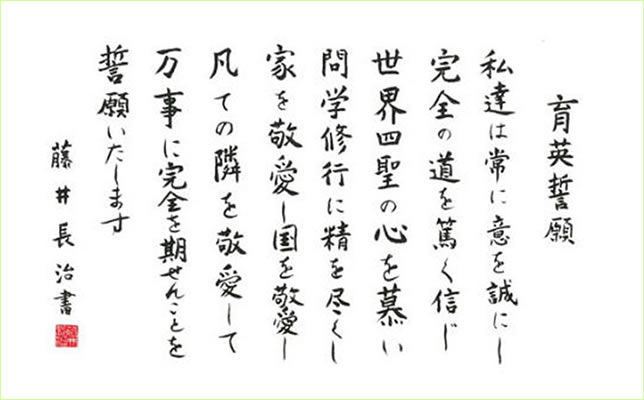 育英誓願
私達は常に意を誠にし
完全の道を篤く信じ
世界四聖の心を慕い
問学修行に精を尽くし
家を敬愛し国を敬愛し
凡ての隣を敬愛して
万事に完全を期せんことを
誓願いたします
藤井長治書